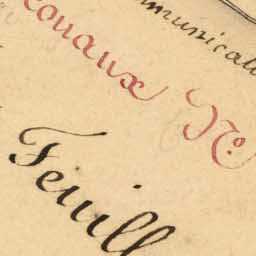 mmunicati
couaux No
Feuill